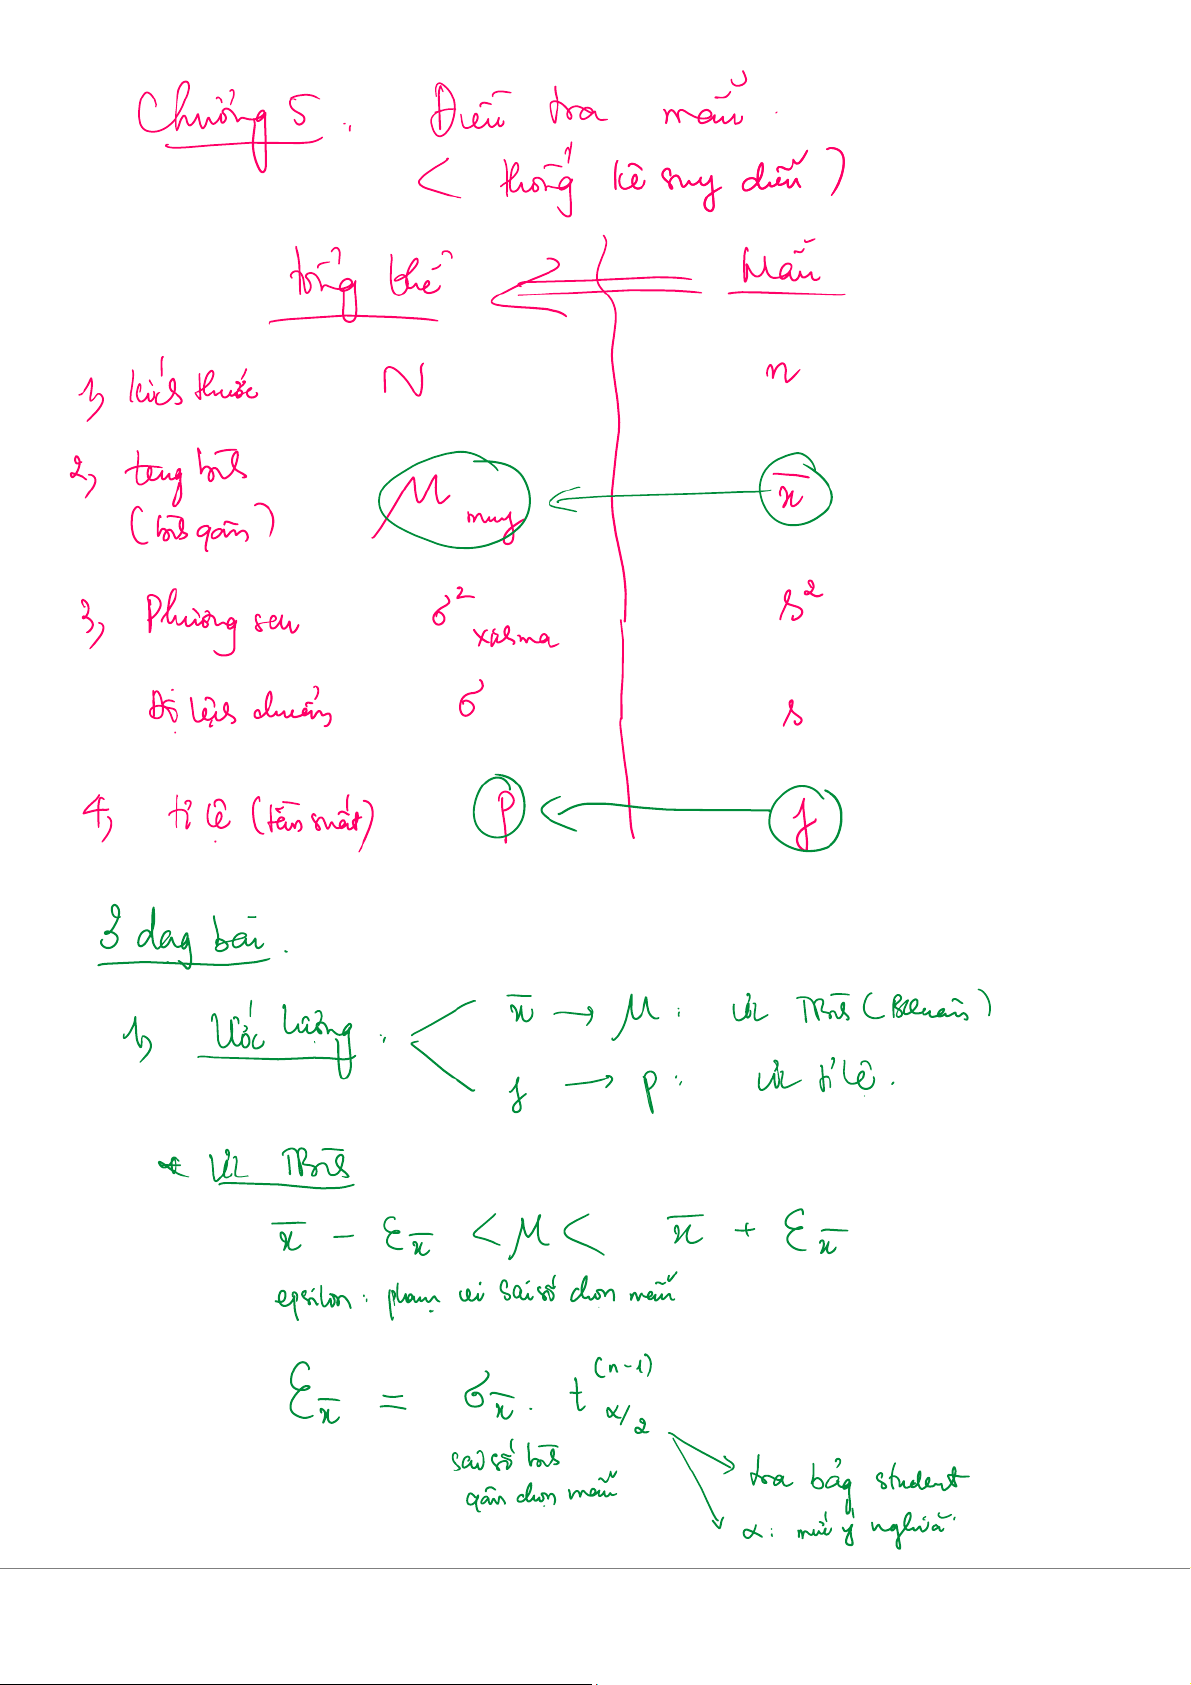 Chương 5 : Điều tra mẫu.
( thống kê suy diễn )
tổng thể Mẫu
1, kích thước N n
2, trung bình μ muy x̄
(bình quân)
3, Phương sai σ² xichma s²
Độ lệch chuẩn σ s
4, tỉ lệ (tần suất) p f
3 dạng bài .
1, Ước lượng : x̄ → μ : ƯL TBình (Bquân)
f → p : ƯL tỉ lệ .
* ƯL TBình
x̄ - ε x̄ < μ < x̄ + ε x̄
epsilon : phạm vi sai số chọn mẫu
ε x̄ = σ x̄ . t α/2 (n-1)
sai số bình
quân chọn mẫu
tra bảng student
α : mức ý nghĩa